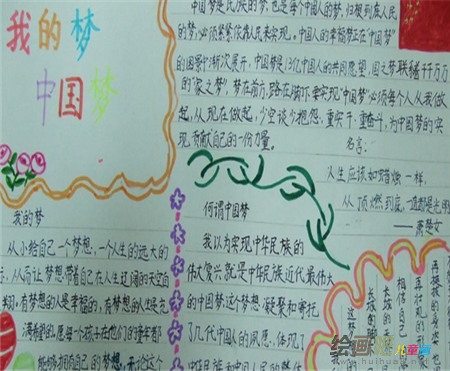 我的梦
中国梦
中国梦是民族的梦,也是每个中国人的梦,归根到底人民
的梦,必须紧紧依靠人民来实现。中国人的幸福梦正在"中国梦"
的图景中渐次展开,中国梦是13亿中国人的共同愿望,国之梦联播千万万
的"家之梦",梦在前方,路在脚下,要实现"中国梦"必须每个人从我做
起,从现在做起,少空谈少抱怨,重实干,重奋斗,为中国梦的实
现,贡献自己的一份力量。
名言:
人生应该如蜡烛一样,
从顶燃到底,一直都是光明
——萧楚女
我的梦
从小给自己一个梦想,一个人生的远大的
从而让梦想带着自己在人生辽阔的天空自
翱翔。有梦想的人是幸福的,有梦想的人生是充
满希望的,愿每个孩子在他们的童年都
能够拥有自己的梦想,无论这个
何谓中国梦
我以为实现中华民族的
伟大复兴,就是中华民族近代最伟大
的中国梦这个梦想,凝聚和寄托
了几代中国人的夙愿,体现了
中华民族和中国人民的整体
再
相信自己
这样
绘画 儿童网